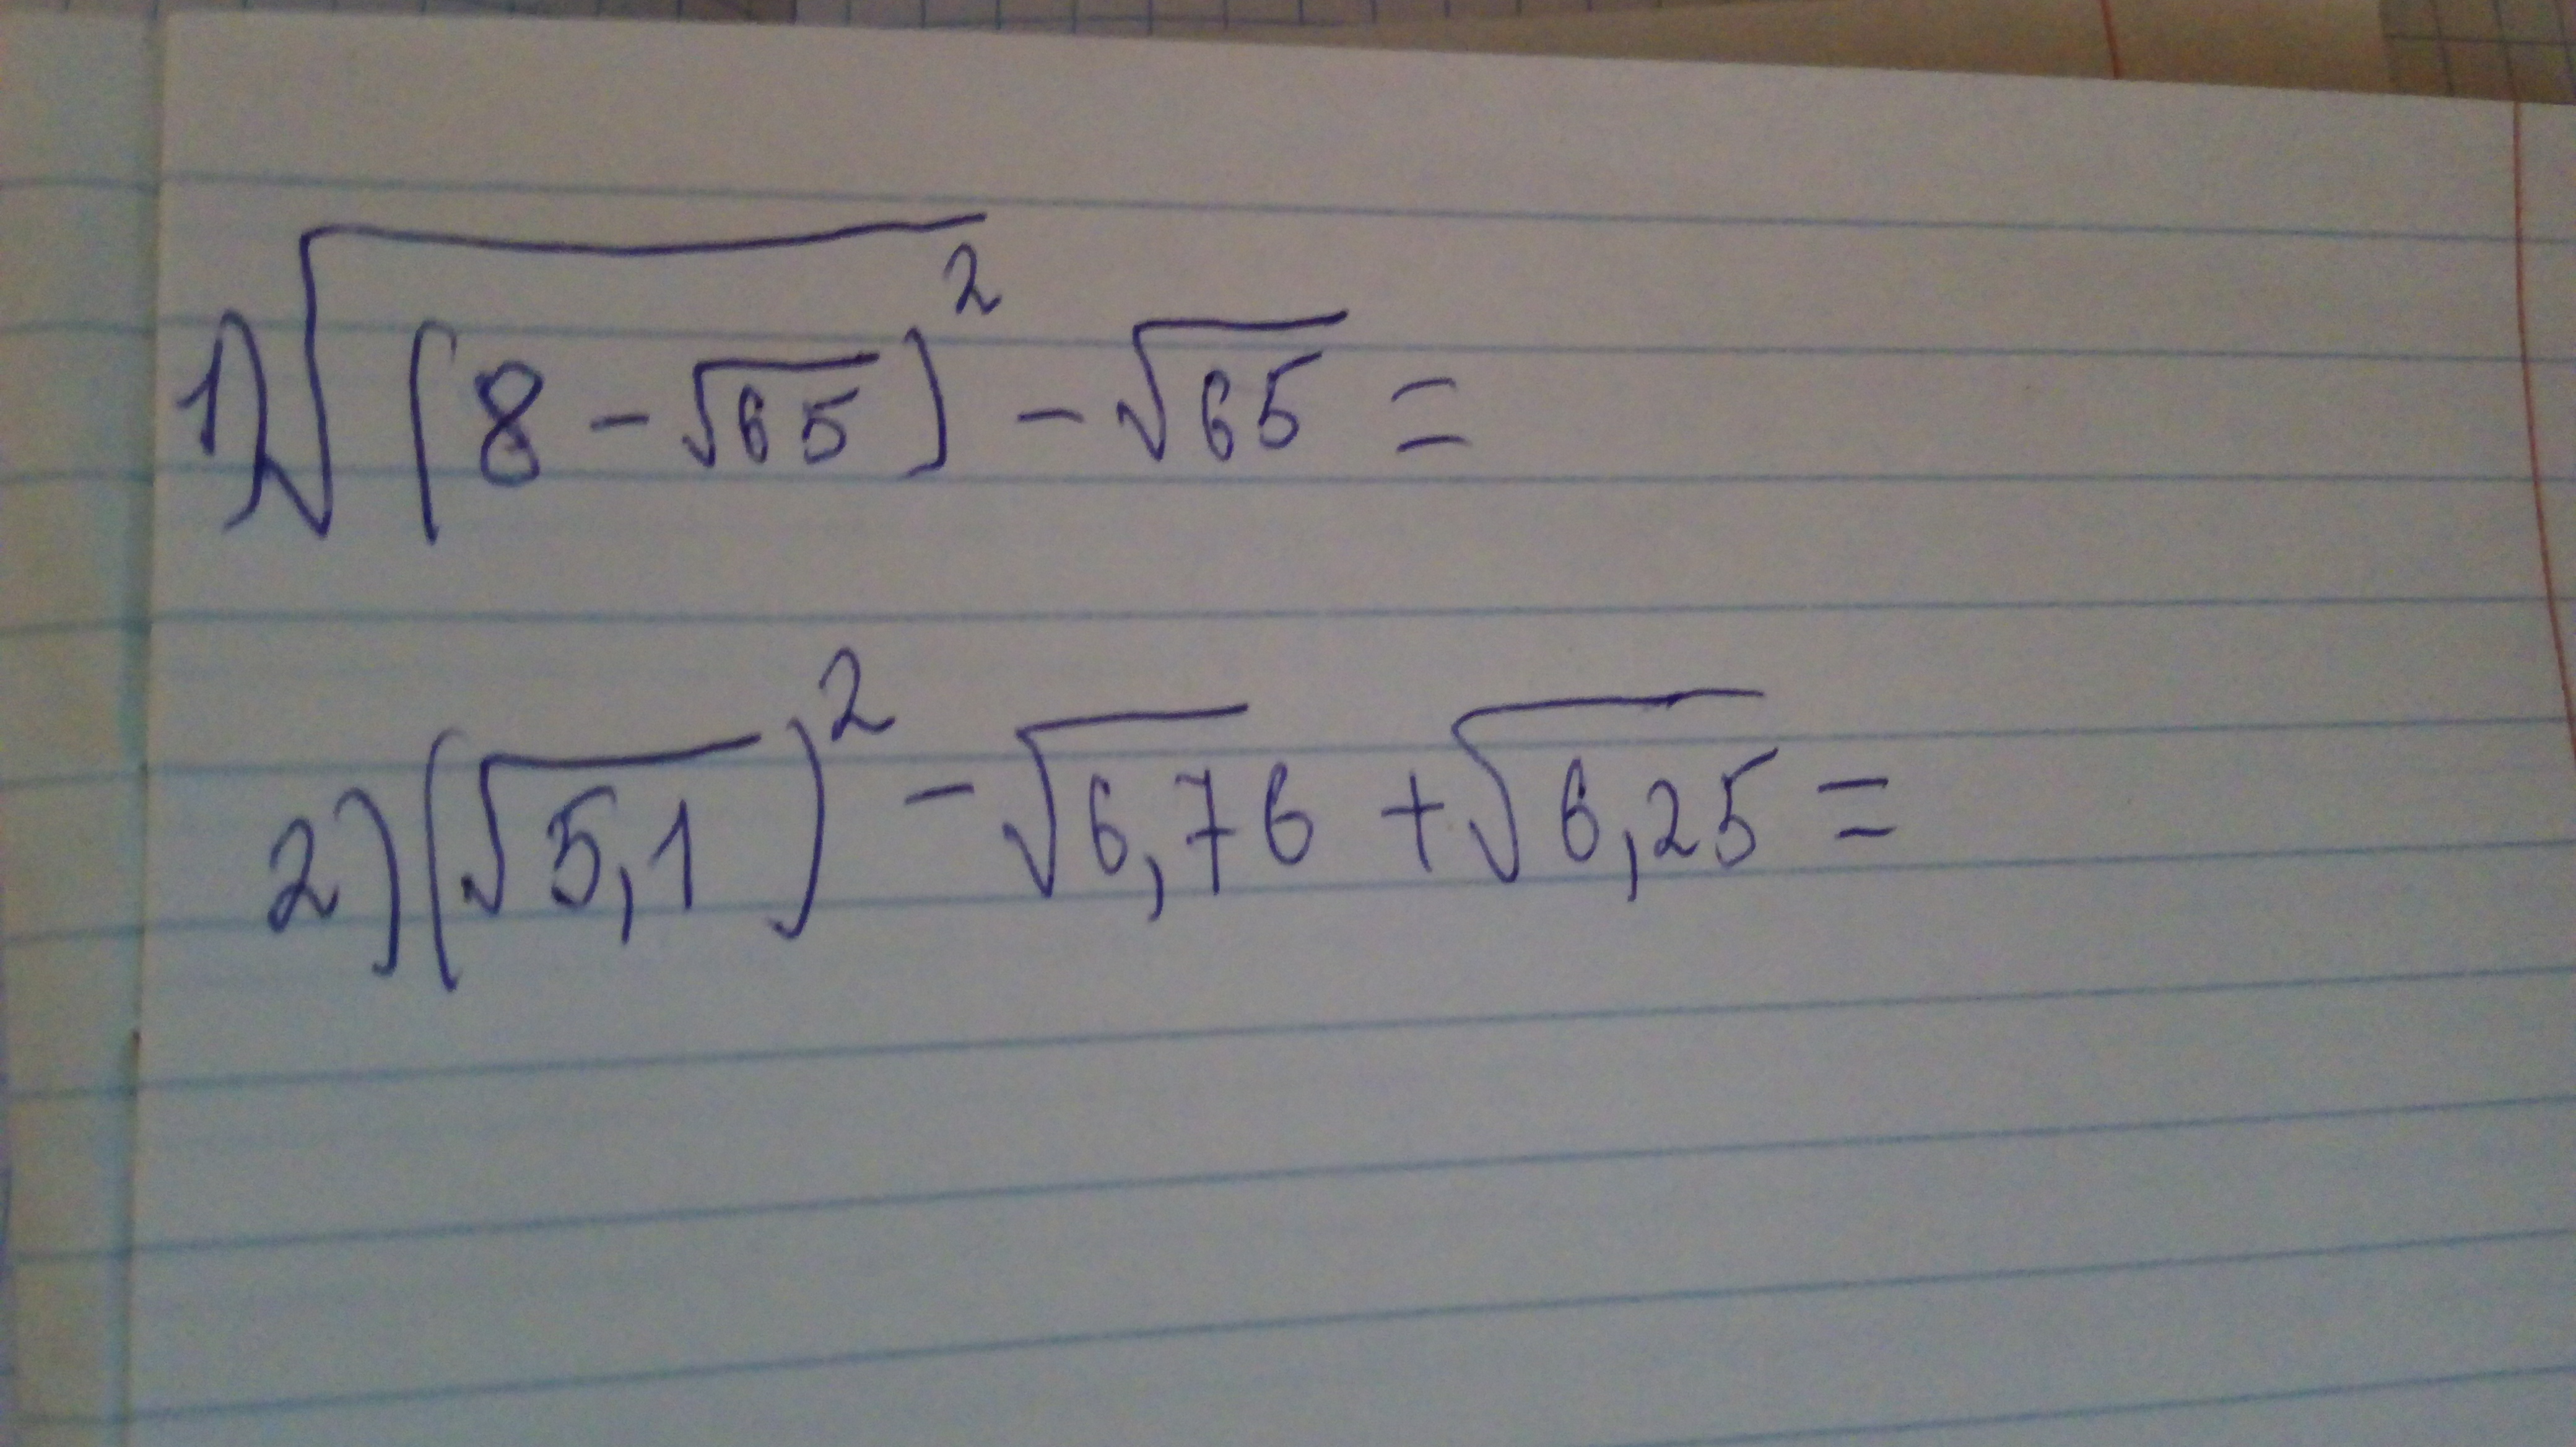 1) √(8 - √65)² - √65 =
2) (√5,1)² - √6,76 + √6,25 =